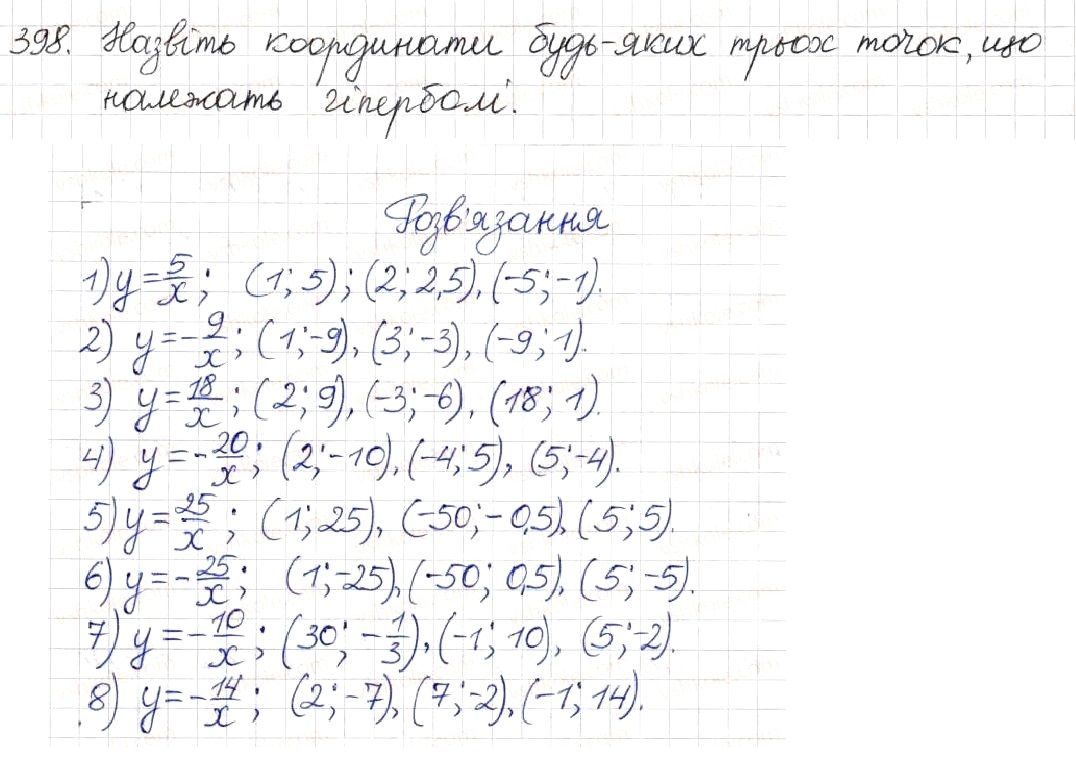 398. Назвіть координати будь-яких трьох точок, що
належать гіперболі.
Розв'язання
1) y = 5/x; (1; 5); (2; 2,5), (-5; -1).
2) y = -9/x; (1; -9), (3; -3), (-9; 1).
3) y = 18/x; (2; 9), (-3; -6), (18; 1).
4) y = -20/x; (2; -10), (-4; 5), (5; -4).
5) y = 25/x; (1; 25), (-50; -0,5), (5; 5).
6) y = -25/x; (1; -25), (-50; 0,5), (5; -5).
7) y = -10/x; (30; -1/3), (-1; 10), (5; -2).
8) y = -14/x; (2; -7), (7; -2), (-1; 14).